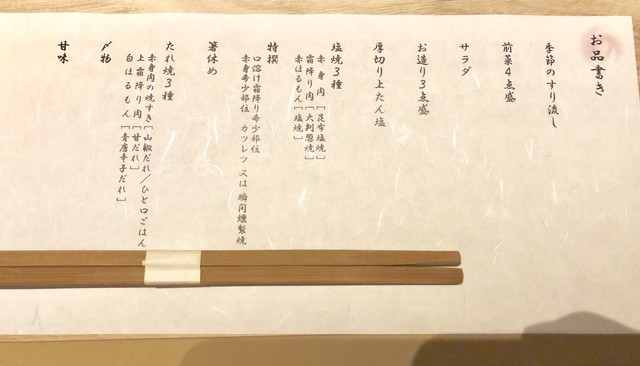 お品書き
季節のすり流し
前菜4点盛
サラダ
お造り3点盛
厚切り上たん塩
塩焼3種
赤身肉 [昆布塩焼]
霜降り肉 [大判葱焼]
赤ほるもん [塩焼]
特撰
口溶け霜降り希少部位
赤身希少部位 カツレツ 又は 瞬間燻製焼
箸休め
たれ焼3種
赤身肉の焼すき [山椒だれ/ひと口ごはん
上霜降り肉 [甘だれ]
白ほるもん [青唐辛子だれ]
〆物
甘味